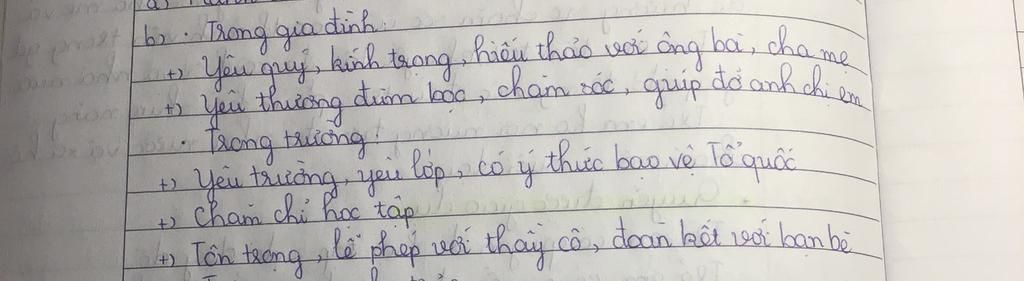 b) · Trong gia đình
+) Yêu quý, kính trọng, hiếu thảo với ông bà, cha mẹ
+) Yêu thương đùm bọc, chăm sóc, giúp đỡ anh chị em
· Trong trường
+) Yêu trường, yêu lớp, có ý thức bảo vệ Tổ quốc
+) Chăm chỉ học tập
+) Tôn trọng, lễ phép với thầy cô, đoàn kết với bạn bè